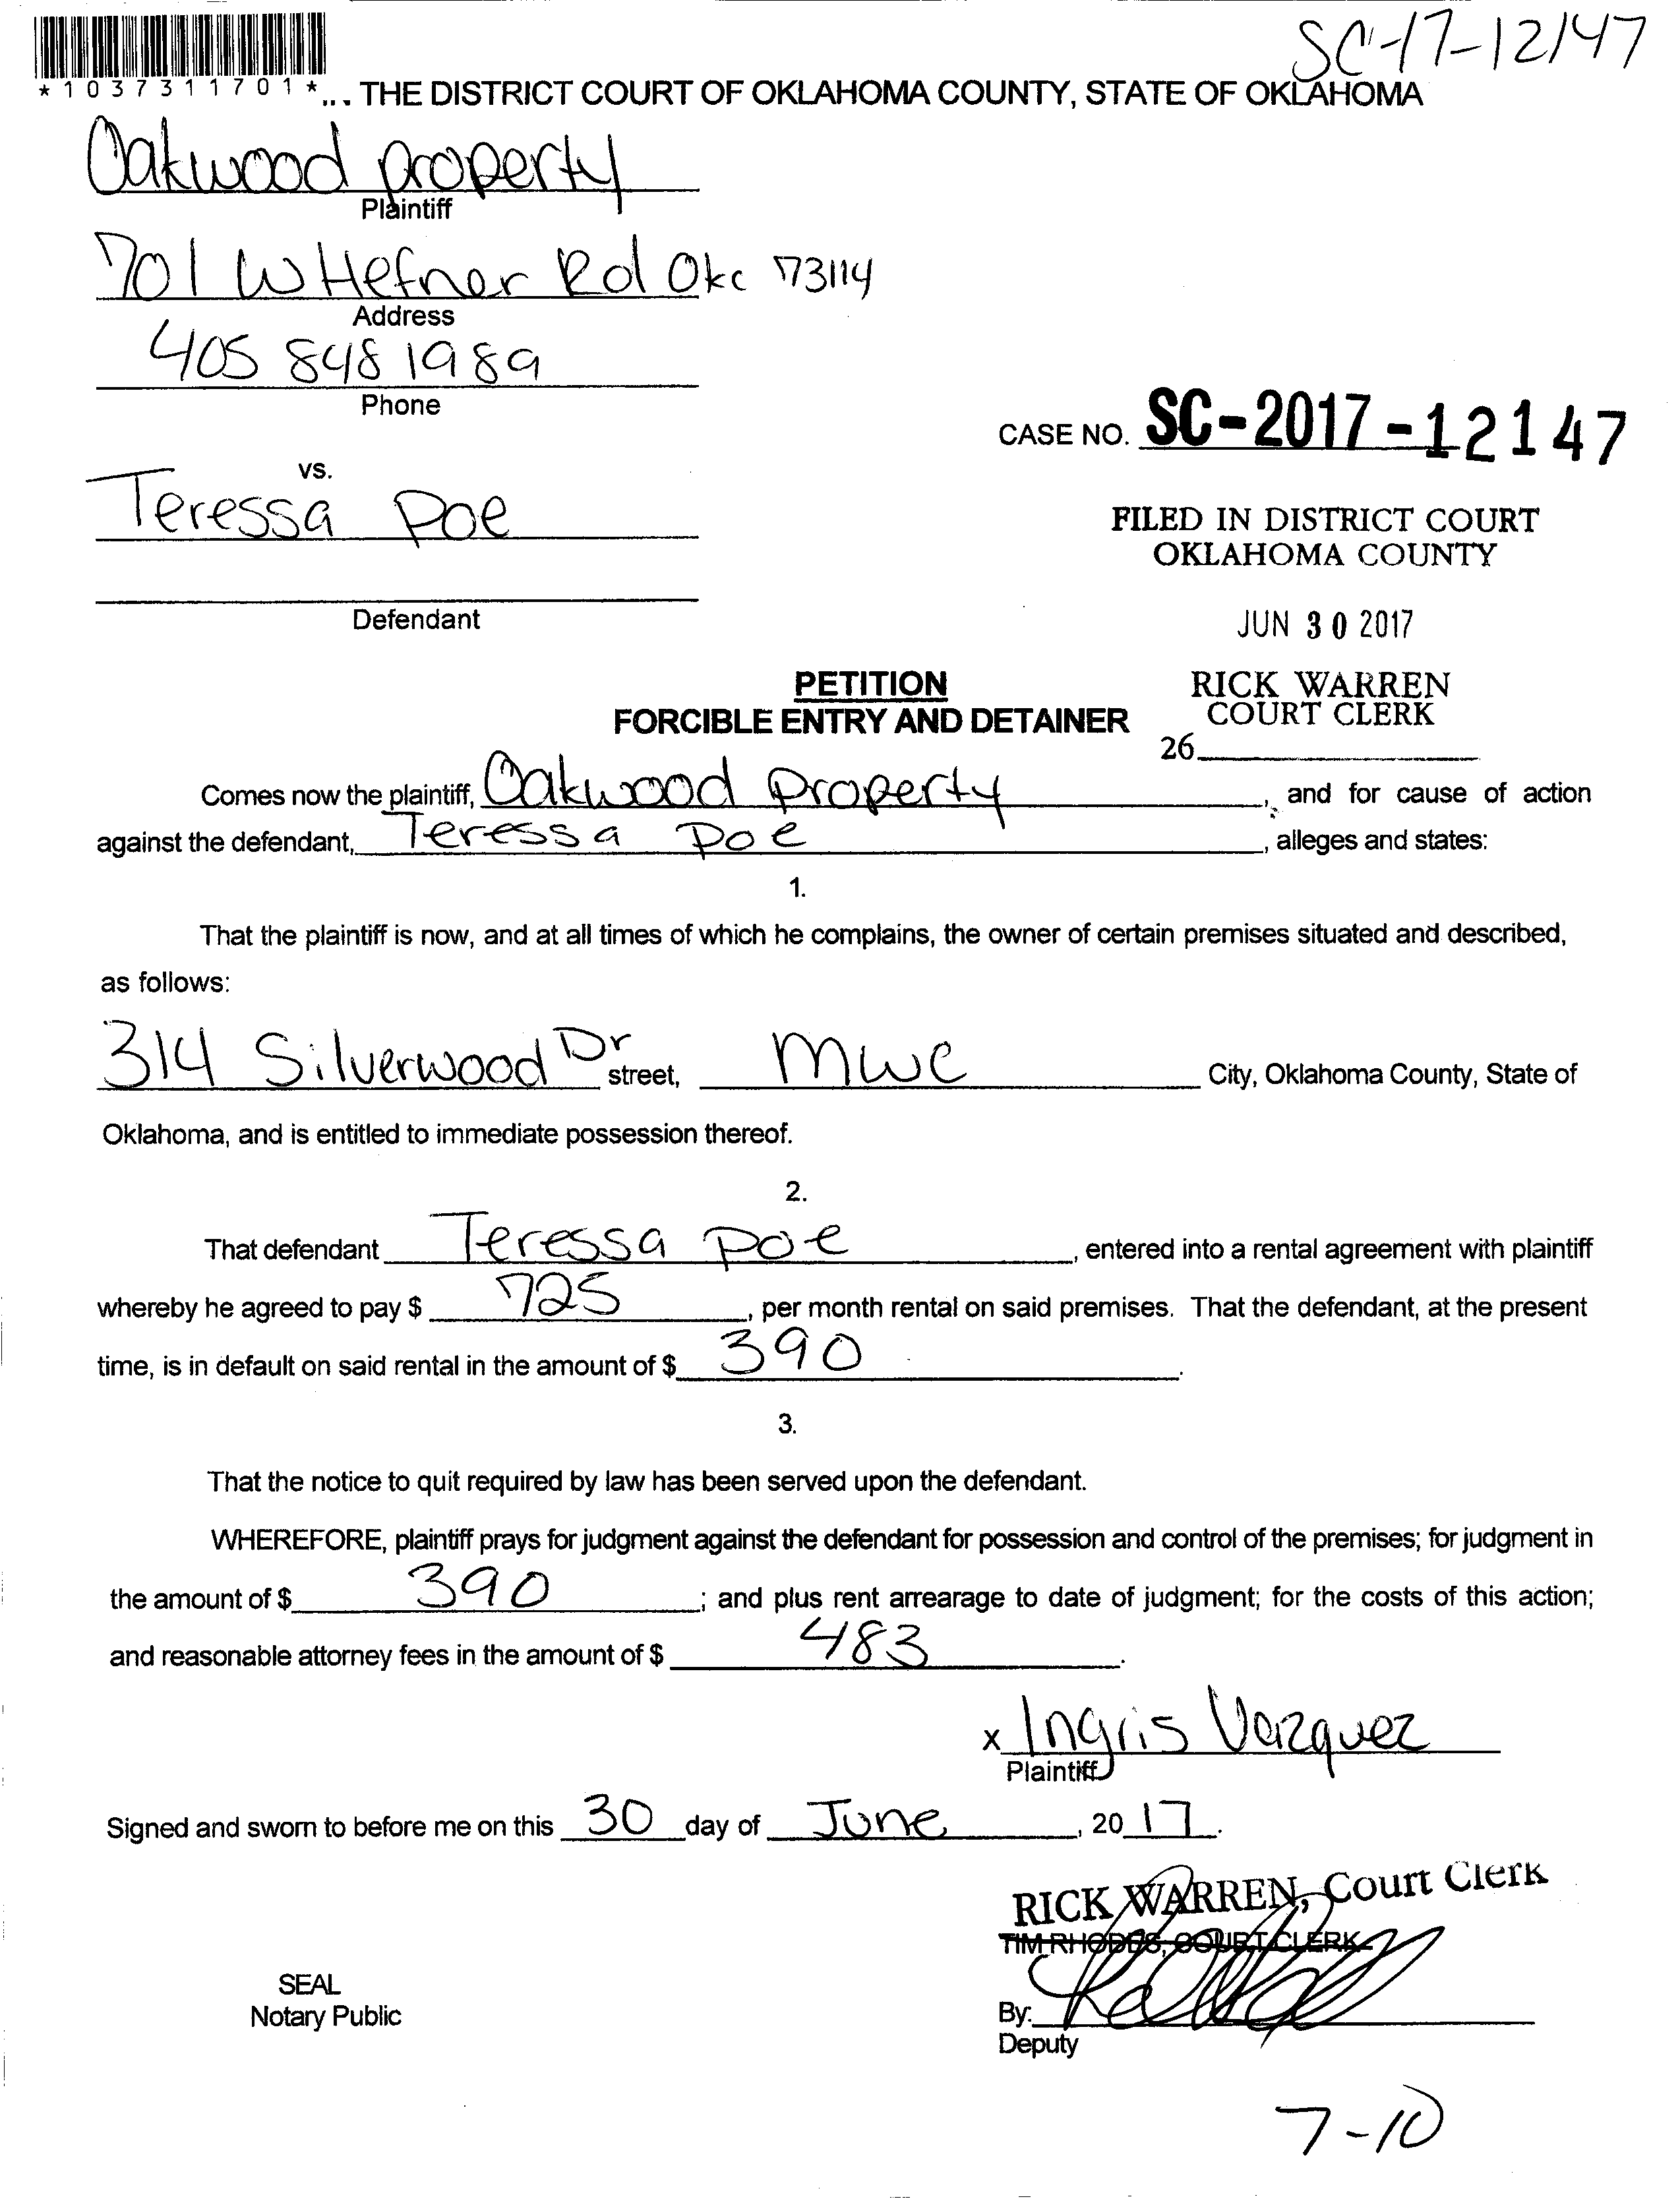 SC-17-12147
*1037311701*
THE DISTRICT COURT OF OKLAHOMA COUNTY, STATE OF OKLAHOMA
Oakwood property
Plaintiff
701 W Hefner Rd Okc 73114
Address
405 848 1989
Phone
CASE NO. SC-2017-12147
vs.
Teressa Poe
FILED IN DISTRICT COURT
OKLAHOMA COUNTY
Defendant
JUN 30 2017
PETITION
FORCIBLE ENTRY AND DETAINER
RICK WARREN
COURT CLERK
26
Comes now the plaintiff, Oakwood Property, and for cause of action
against the defendant, Teressa Poe, alleges and states:
1.
That the plaintiff is now, and at all times of which he complains, the owner of certain premises situated and described,
as follows:
314 Silverwood Dr street, MWC City, Oklahoma County, State of
Oklahoma, and is entitled to immediate possession thereof.
2.
That defendant Teressa Poe, entered into a rental agreement with plaintiff
whereby he agreed to pay $ 725, per month rental on said premises. That the defendant, at the present
time, is in default on said rental in the amount of $ 390.
3.
That the notice to quit required by law has been served upon the defendant.
WHEREFORE, plaintiff prays for judgment against the defendant for possession and control of the premises; for judgment in
the amount of $ 390; and plus rent arrearage to date of judgment; for the costs of this action;
and reasonable attorney fees in the amount of $ 483.
x Ingris Vazquez
Plaintiff
Signed and sworn to before me on this 30 day of June, 20 17.
RICK WARREN, Court Clerk
TIM RHODES, COURT CLERK
SEAL
Notary Public
By:
Deputy
7-10